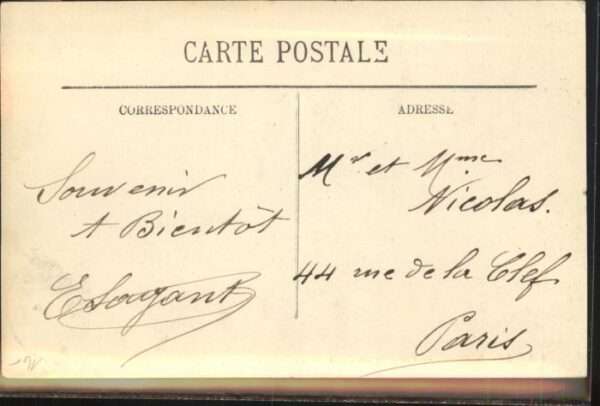 CARTE POSTALE
CORRESPONDANCE
ADRESSE
Souvenir
A Bientôt
Mr et Mme
Nicolas.
44 rue de la Clef
Paris